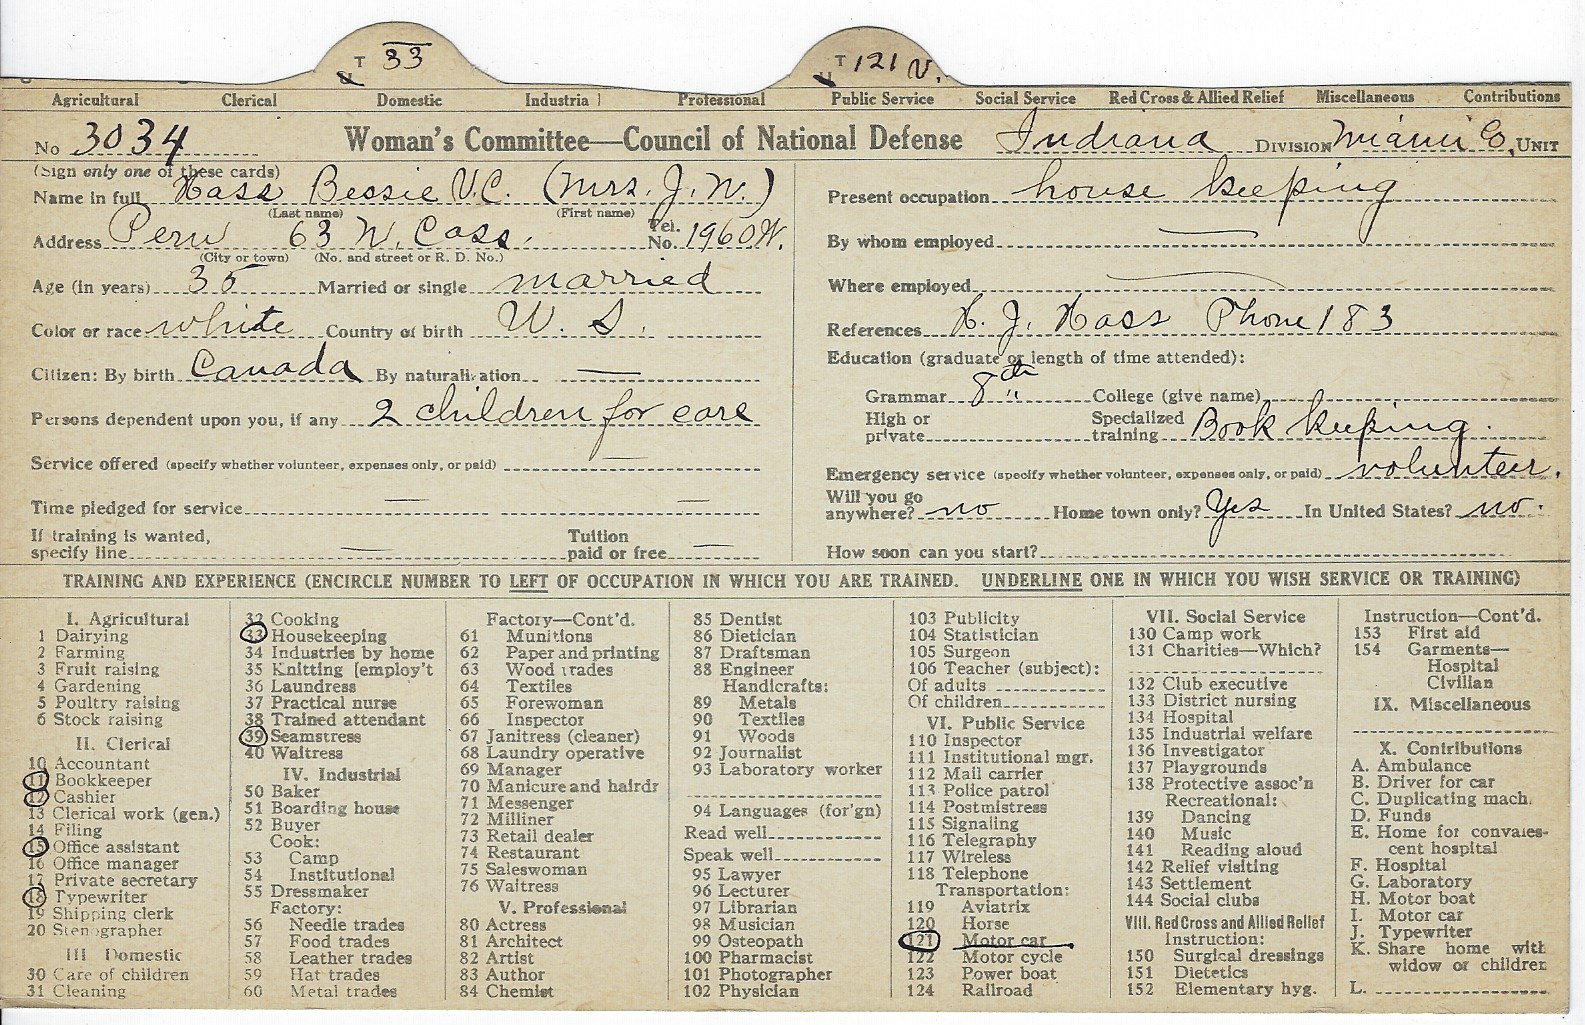 T 33 T 121 V.
U U
Agricultural Clerical Domestic Industrial Professional Public Service Social Service Red Cross & Allied Relief Miscellaneous Contributions
No 3034 Woman's Committee—Council of National Defense Indiana DIVISION Miami Co. UNIT
(Sign only one of these cards)
Name in full Hass Bessie V.C. (Mrs. J. W.)
(Last name) (First name)
Address Peru 63 N. Cass. Tel. No. 1960W.
(City or town) (No. and street or R. D. No.)
Age (in years) 35 Married or single married
Color or race white Country of birth U. S.
Citizen: By birth Canada By naturalization —
Persons dependent upon you, if any 2 children for care
Service offered (specify whether volunteer, expenses only, or paid) —
Time pledged for service — —
If training is wanted, specify line — Tuition paid or free —
Present occupation house keeping
By whom employed —
Where employed —
References H. J. Hass Phone 183
Education (graduate or length of time attended):
Grammar 8th College (give name)
High or private Specialized training Book keeping.
Emergency service (specify whether volunteer, expenses only, or paid) volunteer.
Will you go anywhere? no Home town only? Yes In United States? no.
How soon can you start?
TRAINING AND EXPERIENCE (ENCIRCLE NUMBER TO LEFT OF OCCUPATION IN WHICH YOU ARE TRAINED. UNDERLINE ONE IN WHICH YOU WISH SERVICE OR TRAINING)
I. Agricultural
1 Dairying
2 Farming
3 Fruit raising
4 Gardening
5 Poultry raising
6 Stock raising
II. Clerical
10 Accountant
11 Bookkeeper
12 Cashier
13 Clerical work (gen.)
14 Filing
15 Office assistant
16 Office manager
17 Private secretary
18 Typewriter
19 Shipping clerk
20 Stenographer
III Domestic
30 Care of children
31 Cleaning
32 Cooking
33 Housekeeping
34 Industries by home
35 Knitting [employ't
36 Laundress
37 Practical nurse
38 Trained attendant
39 Seamstress
40 Waitress
IV. Industrial
50 Baker
51 Boarding house
52 Buyer
Cook:
53 Camp
54 Institutional
55 Dressmaker
Factory:
56 Needle trades
57 Food trades
58 Leather trades
59 Hat trades
60 Metal trades
Factory—Cont'd.
61 Munitions
62 Paper and printing
63 Wood trades
64 Textiles
65 Forewoman
66 Inspector
67 Janitress (cleaner)
68 Laundry operative
69 Manager
70 Manicure and hairdr
71 Messenger
72 Milliner
73 Retail dealer
74 Restaurant
75 Saleswoman
76 Waitress
V. Professional
80 Actress
81 Architect
82 Artist
83 Author
84 Chemist
85 Dentist
86 Dietician
87 Draftsman
88 Engineer
Handicrafts:
89 Metals
90 Textiles
91 Woods
92 Journalist
93 Laboratory worker
94 Languages (for'gn)
Read well
Speak well
95 Lawyer
96 Lecturer
97 Librarian
98 Musician
99 Osteopath
100 Pharmacist
101 Photographer
102 Physician
103 Publicity
104 Statistician
105 Surgeon
106 Teacher (subject):
Of adults
Of children
VI. Public Service
110 Inspector
111 Institutional mgr.
112 Mail carrier
113 Police patrol
114 Postmistress
115 Signaling
116 Telegraphy
117 Wireless
118 Telephone
Transportation:
119 Aviatrix
120 Horse
121 Motor car
122 Motor cycle
123 Power boat
124 Railroad
VII. Social Service
130 Camp work
131 Charities—Which?
132 Club executive
133 District nursing
134 Hospital
135 Industrial welfare
136 Investigator
137 Playgrounds
138 Protective assoc'n
Recreational:
139 Dancing
140 Music
141 Reading aloud
142 Relief visiting
143 Settlement
144 Social clubs
VIII. Red Cross and Allied Relief
Instruction:
150 Surgical dressings
151 Dietetics
152 Elementary hyg.
Instruction—Cont'd.
153 First aid
154 Garments—
Hospital
Civilian
IX. Miscellaneous
X. Contributions
A. Ambulance
B. Driver for car
C. Duplicating mach.
D. Funds
E. Home for convales-
cent hospital
F. Hospital
G. Laboratory
H. Motor boat
I. Motor car
J. Typewriter
K. Share home with
widow or children
L.